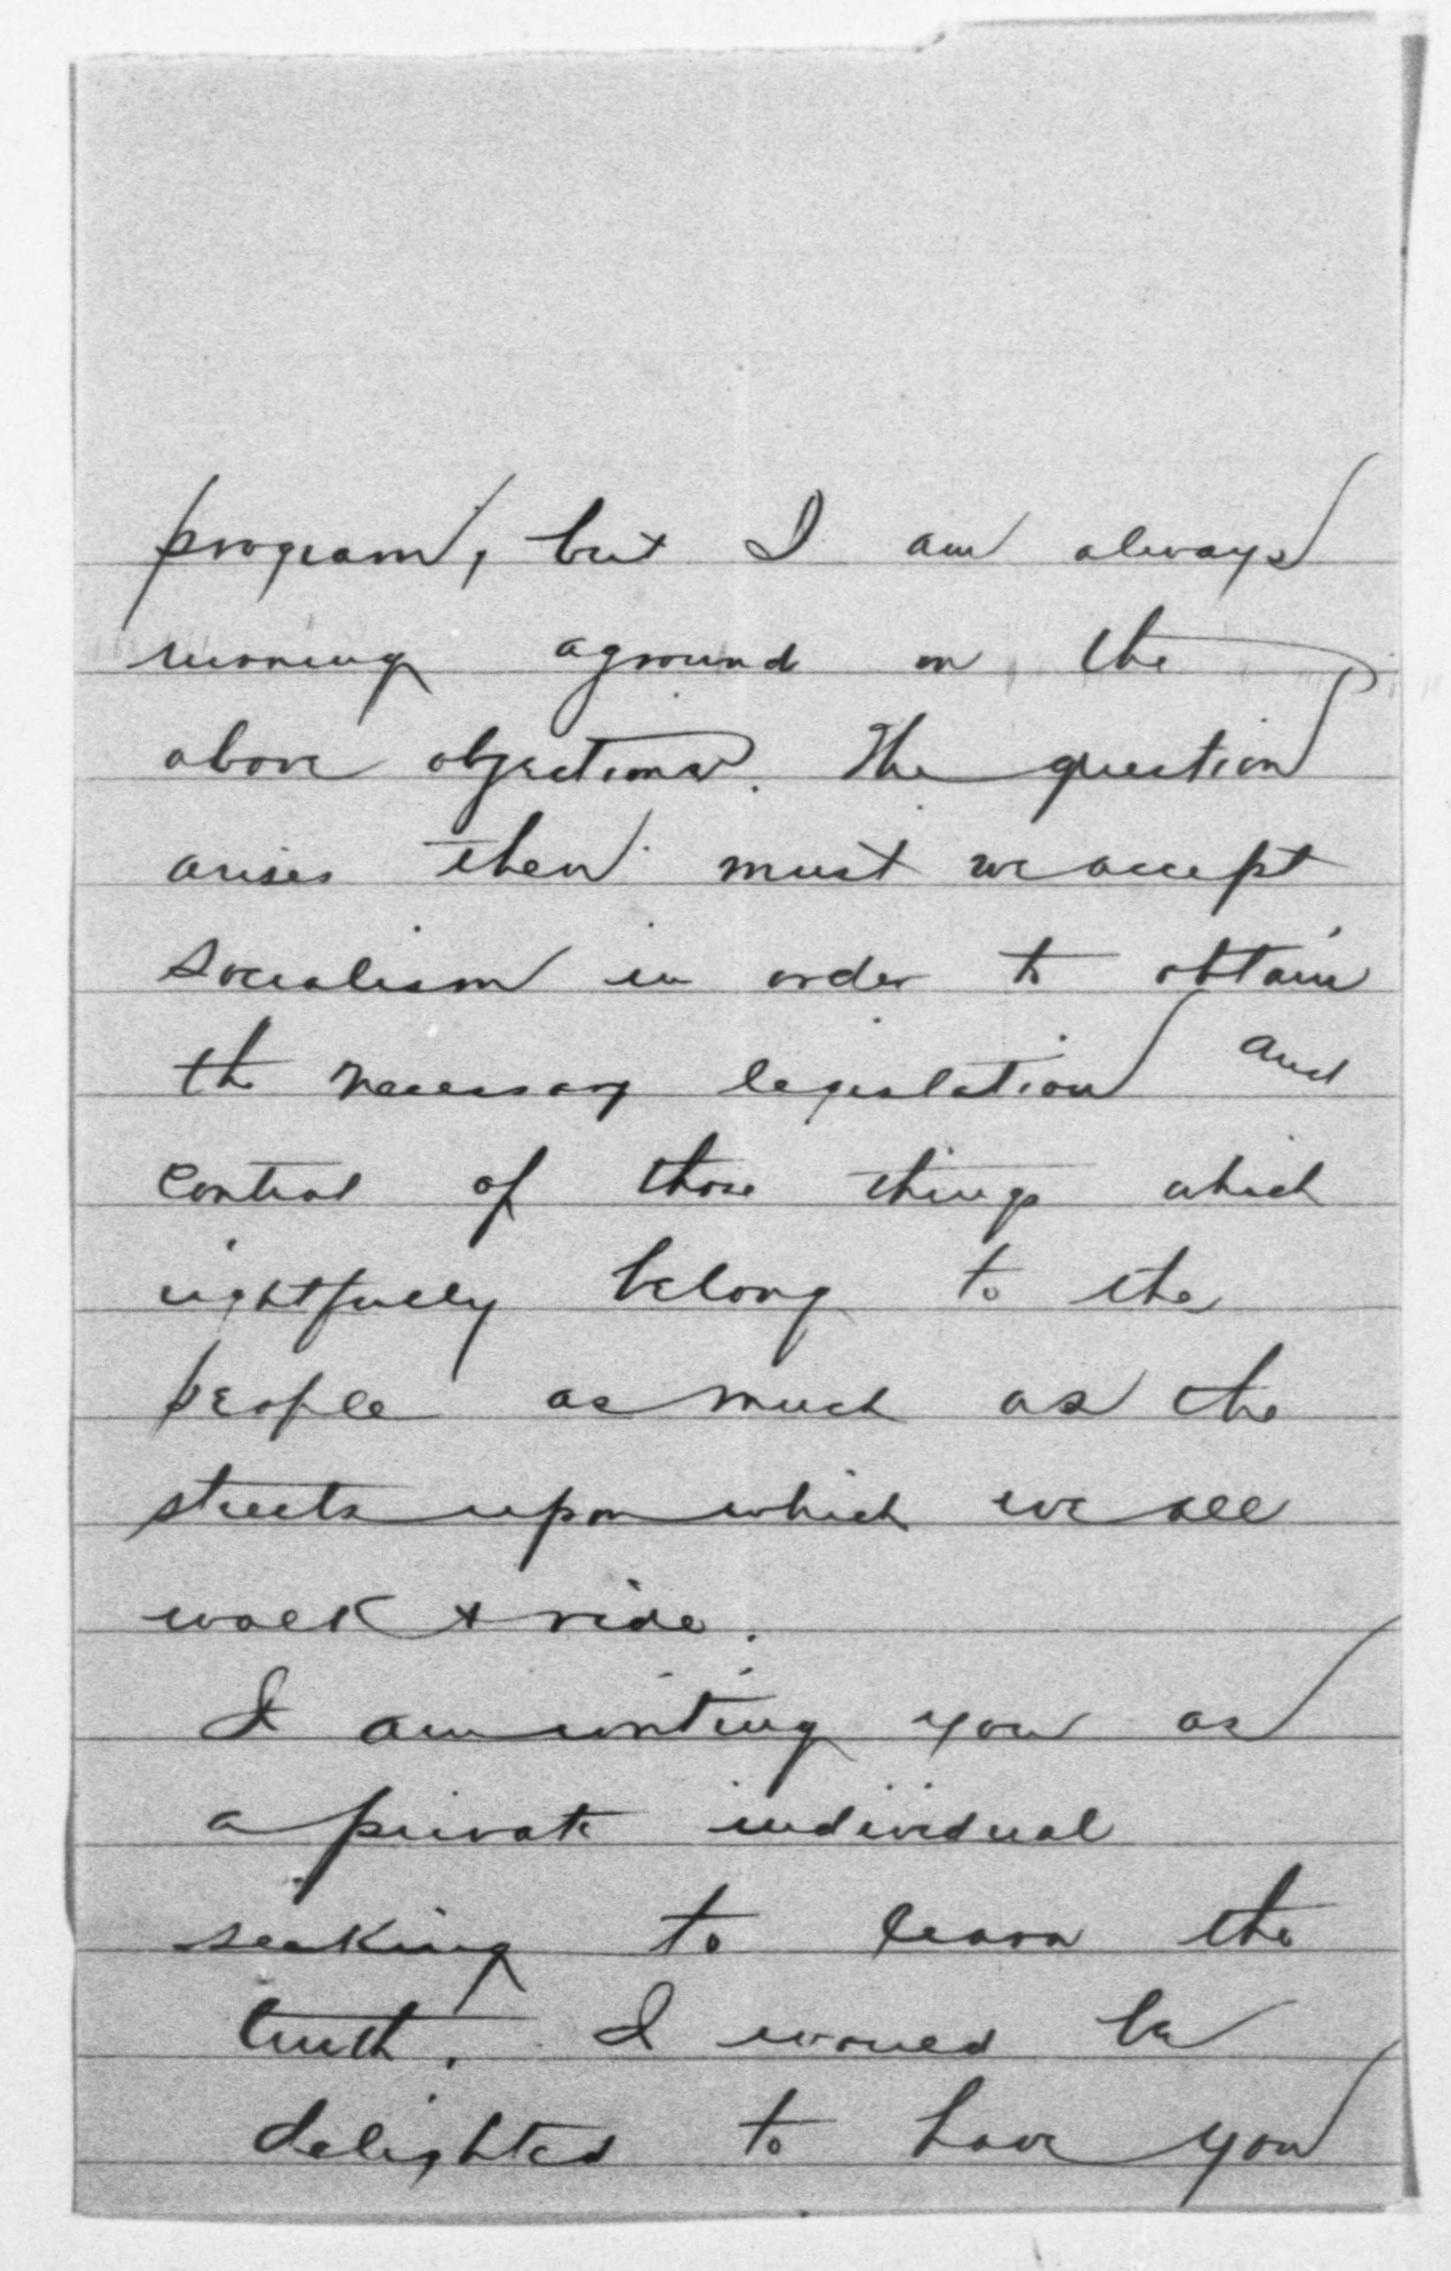 program, but I am always
running aground on the
above objections. The question
arises then must we accept
socialism in order to obtain
the necessary legislation and
control of those things which
rightfully belong to the
people as much as the
streets upon which we all
walk & ride.
I am writing you as
a private individual
seeking to learn the
truth. I would be
delighted to have you